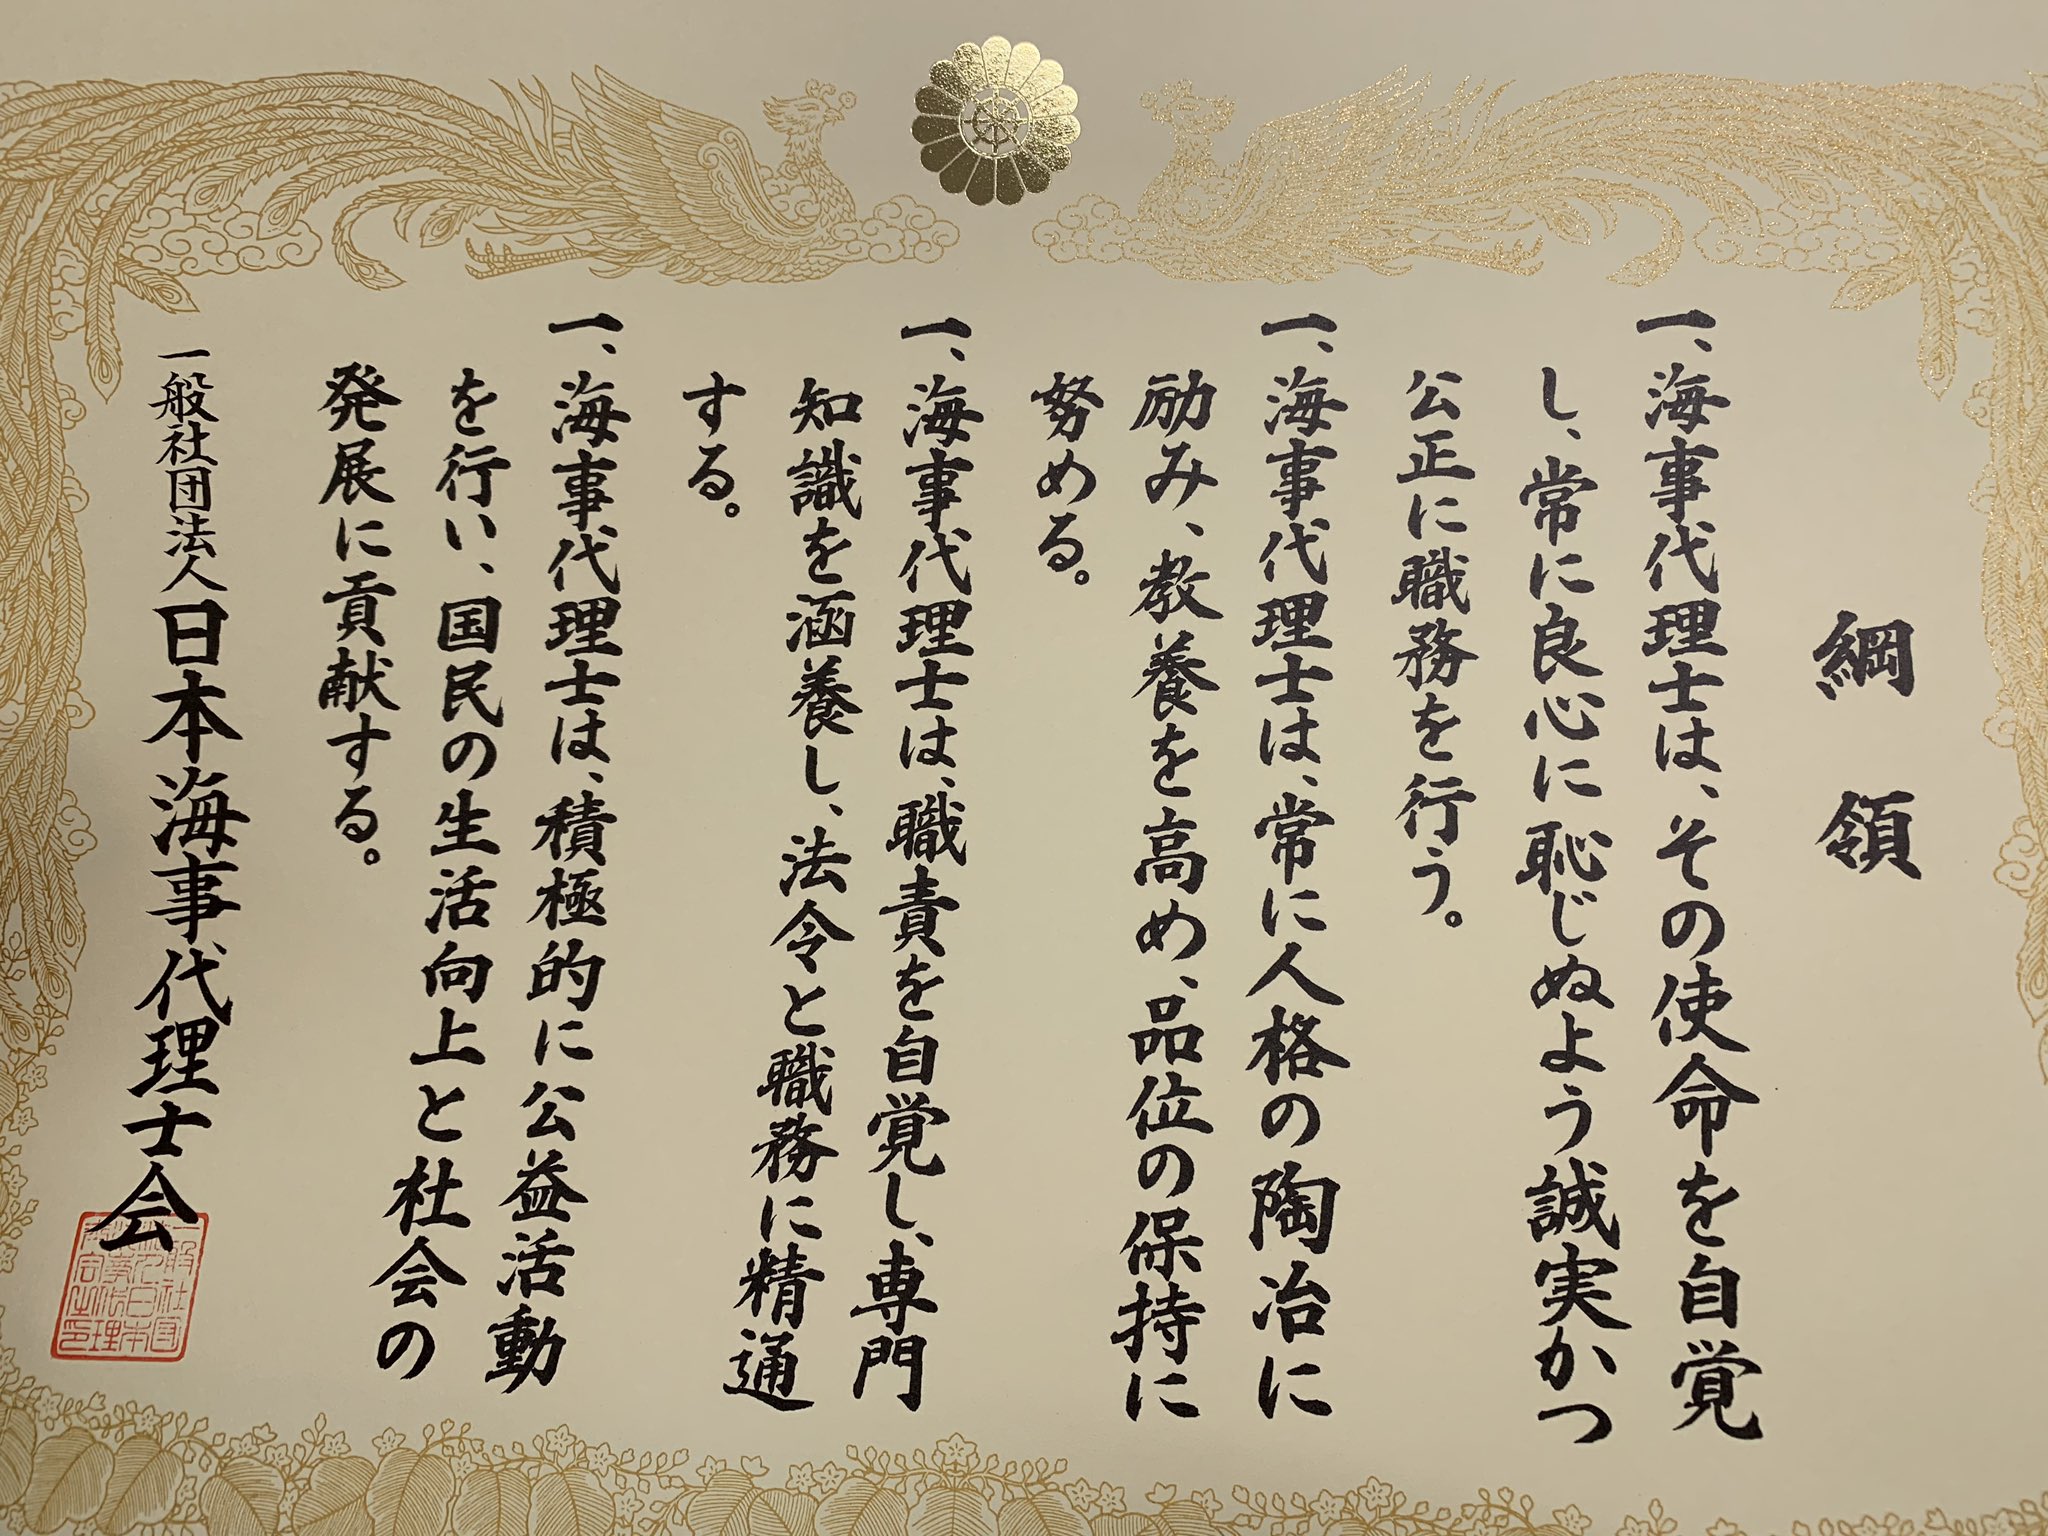 綱領
一、海事代理士は、その使命を自覚
し、常に良心に恥じぬよう誠実かつ
公正に職務を行う。
一、海事代理士は、常に人格の陶冶に
励み、教養を高め、品位の保持に
努める。
一、海事代理士は、職責を自覚し、専門
知識を涵養し、法令と職務に精通
する。
一、海事代理士は、積極的に公益活動
を行い、国民の生活向上と社会の
発展に貢献する。
一般社団法人日本海事代理士会